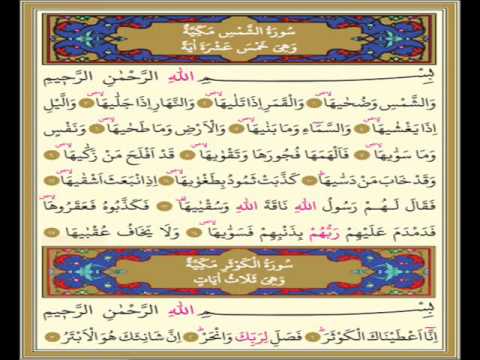 سُورَةُ الشَّمْسِ مَكِّيَّةٌ
وَهِيَ خَمْسَ عَشْرَةَ اٰيَةً
بِسْــــــمِ اللهِ الرَّحْمٰنِ الرَّحِيمِ
وَالشَّمْسِ وَضُحٰيهَا ۝ وَالْقَمَرِ اِذَا تَلٰيهَا ۝ وَالنَّهَارِ اِذَا جَلّٰيهَا ۝ وَالَّيْلِ
اِذَا يَغْشٰيهَا ۝ وَالسَّمَٓاءِ وَمَا بَنٰيهَا ۝ وَالْاَرْضِ وَمَا طَحٰيهَا ۝ وَنَفْسٍ
وَمَا سَوّٰيهَا ۝ فَاَلْهَمَهَا فُجُورَهَا وَتَقْوٰيهَا ۝ قَدْ اَفْلَحَ مَنْ زَكّٰيهَا ۝
وَقَدْ خَابَ مَنْ دَسّٰيهَا ۝ كَذَّبَتْ ثَمُودُ بِطَغْوٰيهَا ۝ اِذِ انْبَعَثَ اَشْقٰيهَا ۝
فَقَالَ لَهُمْ رَسُولُ اللهِ نَاقَةَ اللهِ وَسُقْيٰيهَا ۝ فَكَذَّبُوهُ فَعَقَرُوهَا
فَدَمْدَمَ عَلَيْهِمْ رَبُّهُمْ بِذَنْبِهِمْ فَسَوّٰيهَا ۝ وَلَا يَخَافُ عُقْبٰيهَا ۝
سُورَةُ الْكَوْثَرِ مَكِّيَّةٌ
وَهِيَ ثَلَاثُ اٰيَاتٍ
بِسْــــــمِ اللهِ الرَّحْمٰنِ الرَّحِيمِ
اِنَّٓا اَعْطَيْنَاكَ الْكَوْثَرَ ۝ فَصَلِّ لِرَبِّكَ وَانْحَرْ ۝ اِنَّ شَانِئَكَ هُوَ الْاَبْتَرُ ۝